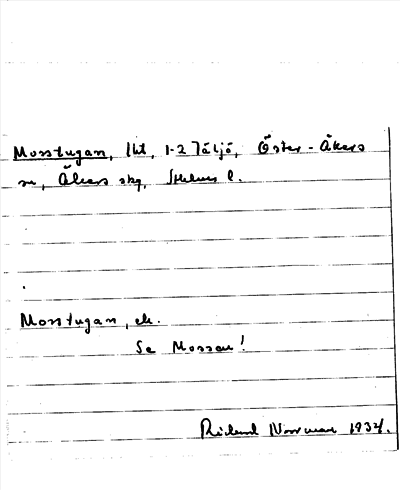 Mosstugan, lht, 1-2 Täljö, Öster-Åkers
sn, Åkers skg, Sthlms l.
Mosstugan, ek.
Se Mossen!
Rickard Norrman 1934.